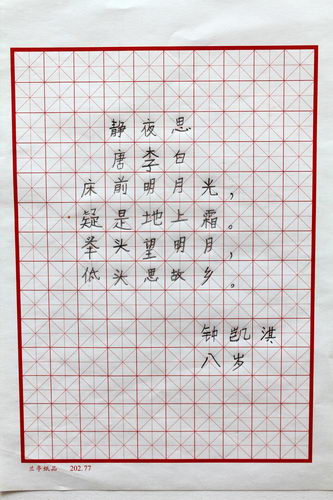 静夜思
唐李白
床前明月光，
疑是地上霜。
举头望明月，
低头思故乡。
钟凯淇
八岁
兰亭纸品 202.77